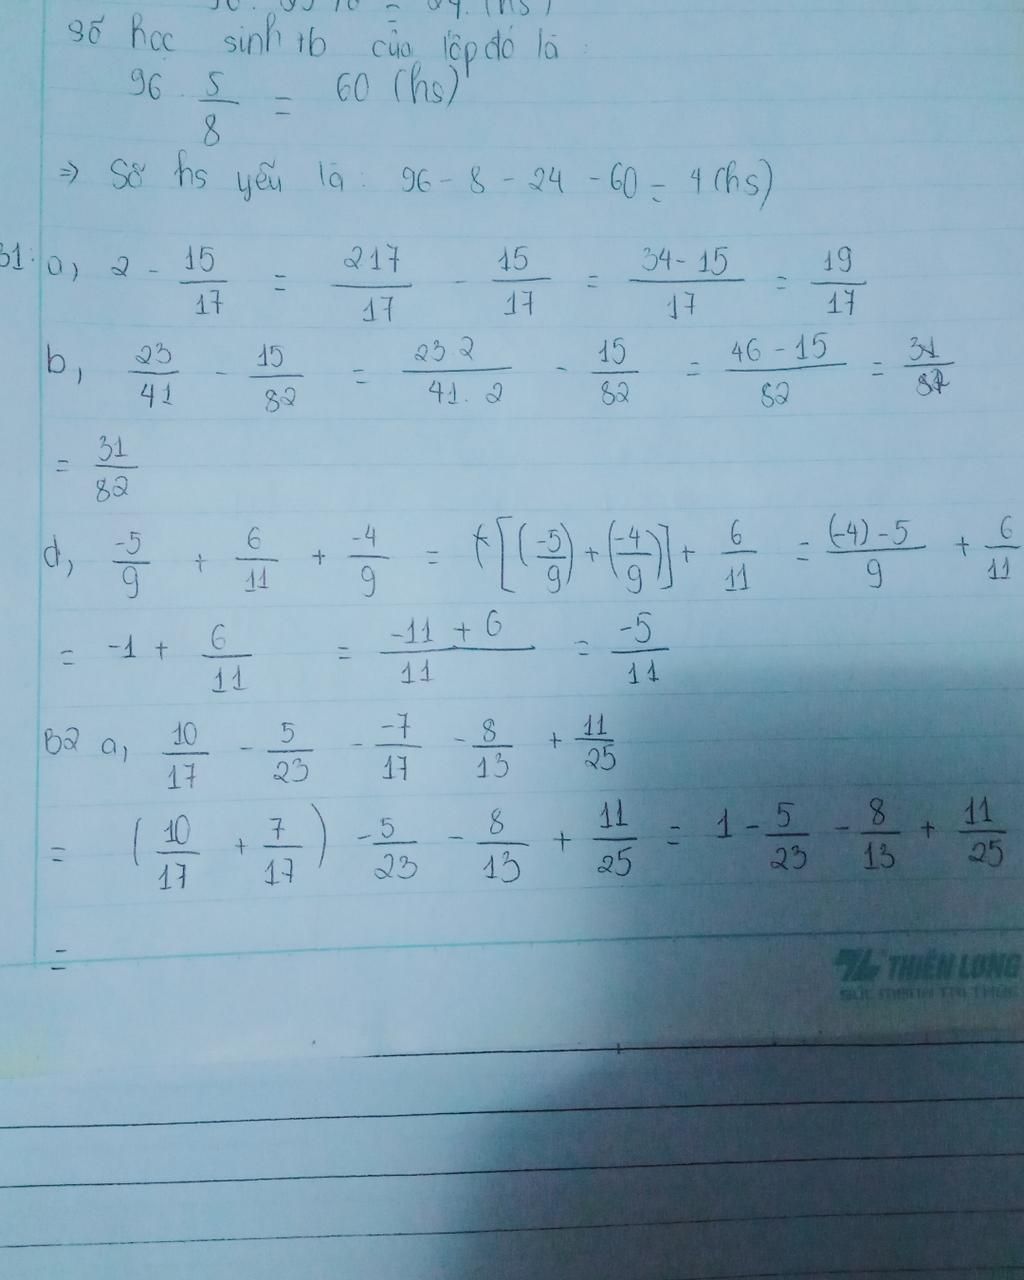 = 24. (hs)
số học sinh tb của lớp đó là :
96 . 5/8 = 60 (hs)
⇒ Số hs yếu là : 96 - 8 - 24 - 60 = 4 (hs)
B1: a, 2 - 15/17 = 2 17/17 - 15/17 = 34-15/17 = 19/17
b, 23/41 - 15/82 = 23.2/41.2 - 15/82 = 46-15/82 = 31/82
= 31/82
d, -5/9 + 6/11 + -4/9 = [(-5/9) + (-4/9)] + 6/11 = (-4)-5/9 + 6/11
= -1 + 6/11 = -11+6/11 = -5/11
B2 a, 10/17 - 5/23 - -7/17 - 8/13 + 11/25
= (10/17 + 7/17) - 5/23 - 8/13 + 11/25 = 1 - 5/23 - 8/13 + 11/25
=
TL THIÊN LONG
SỨC MẠNH TRI THỨC